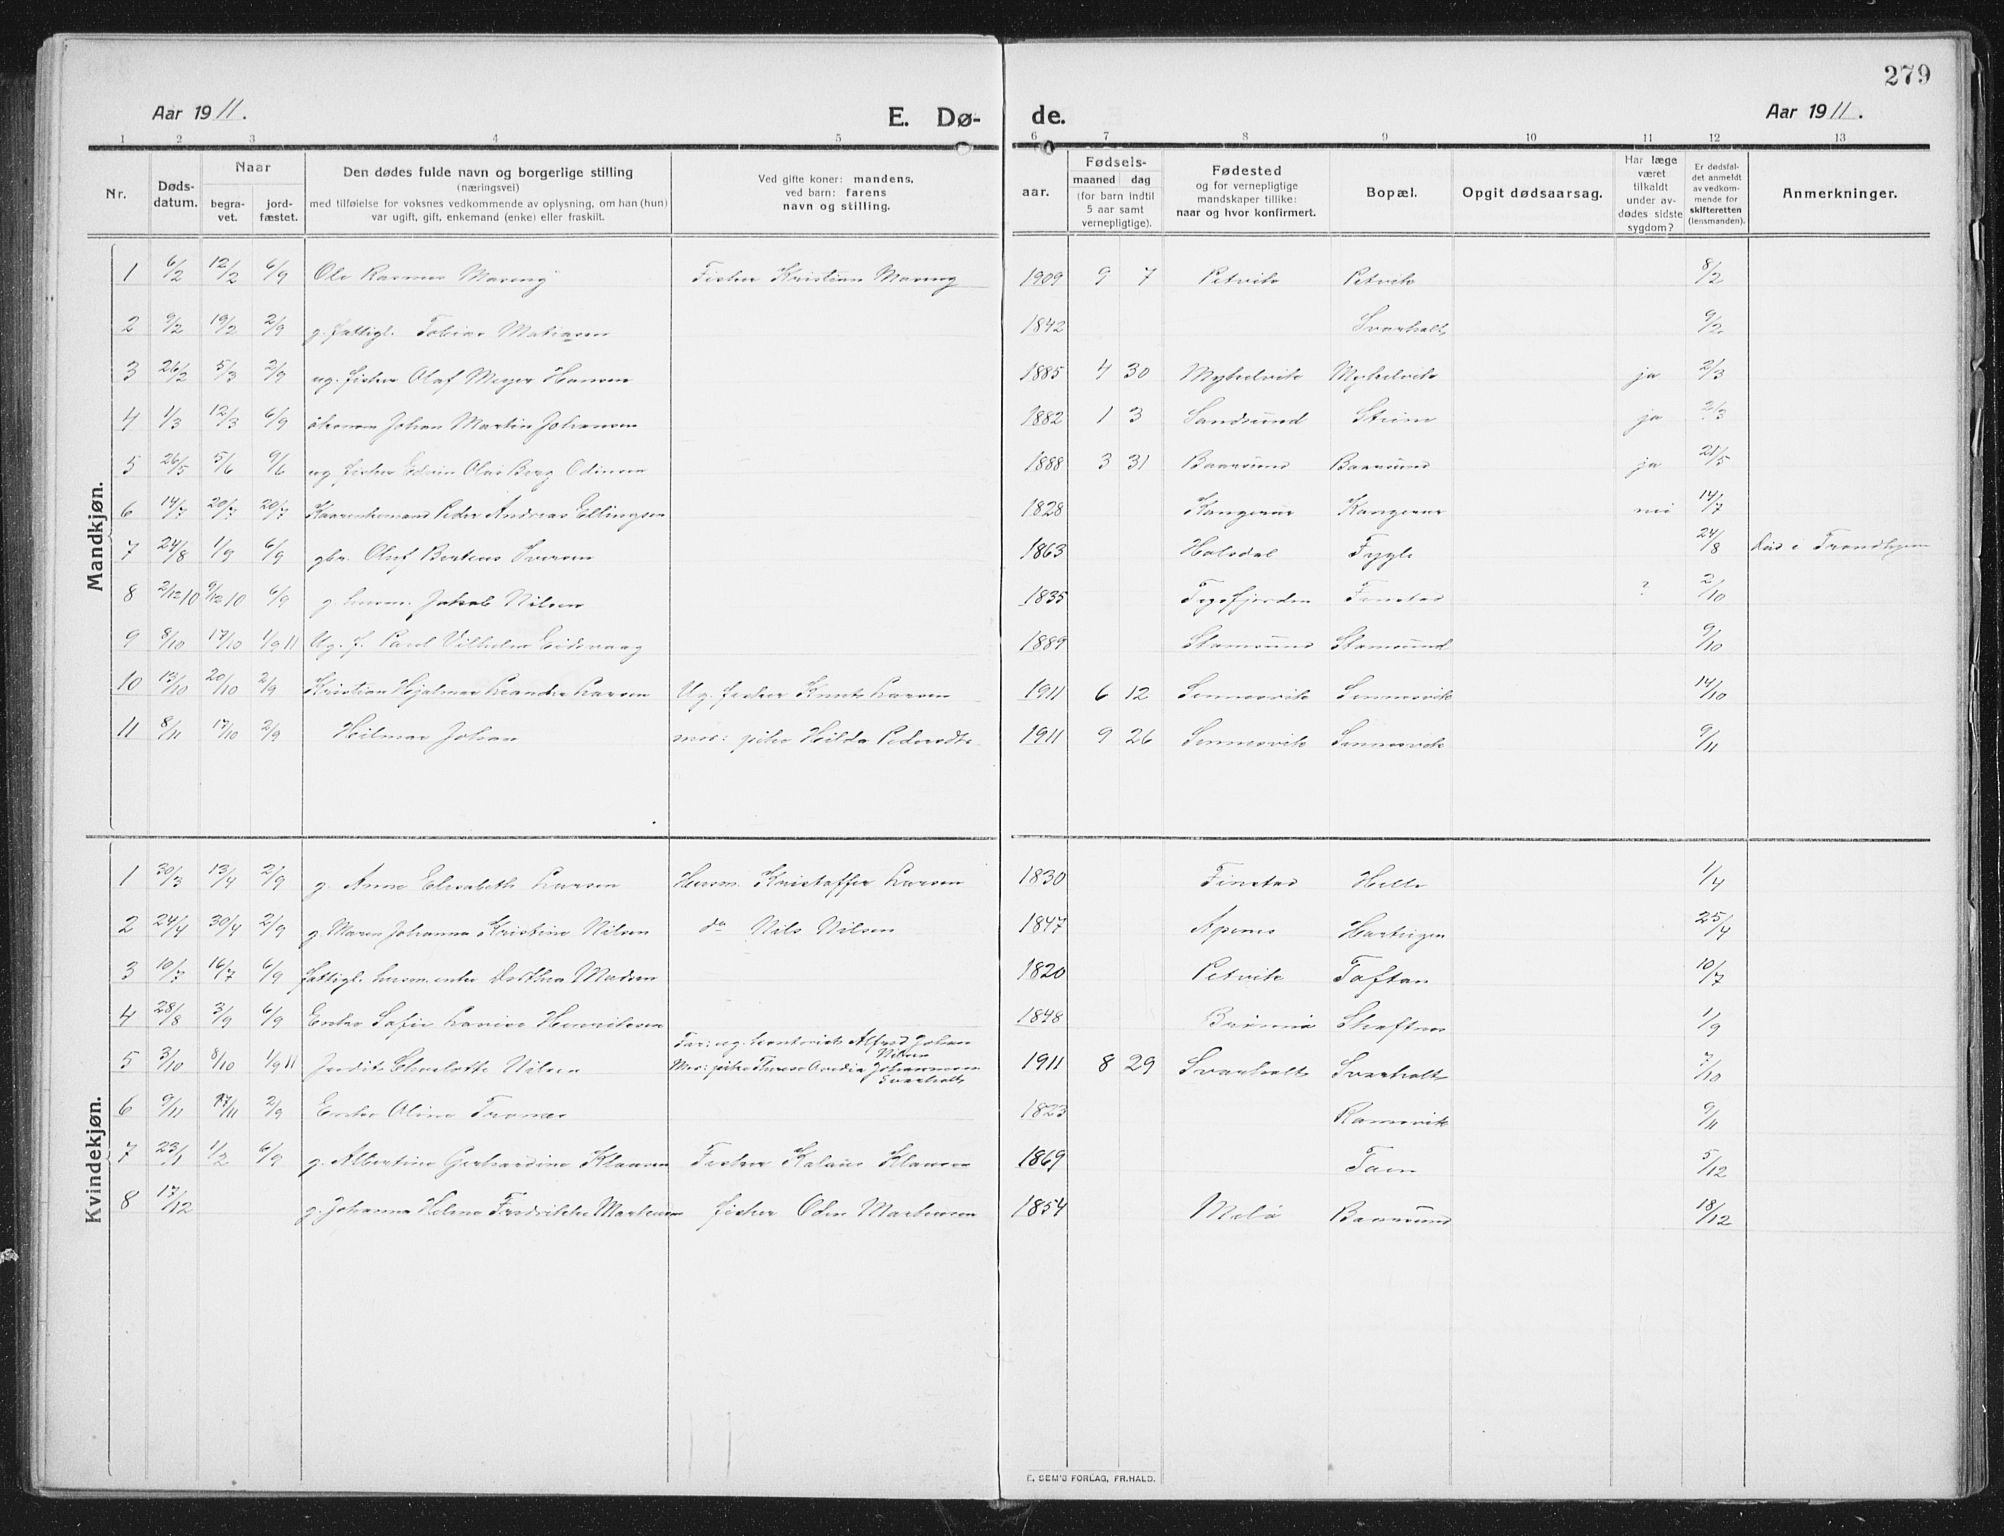 279
Aar 1911.
E. Dø-
de.
Aar 1911.
1 2 3 4 5 6 7 8 9 10 11 12 13
Nr.
Døds-
datum.
Naar
begra-
vet.
jord-
fæstet.
Den dødes fulde navn og borgerlige stilling
(næringsvei)
med tilføielse for voksnes vedkommende av oplysning, om han (hun)
var ugift, gift, enkemand (enke) eller fraskilt.
Ved gifte koner: mandens,
ved barn: farens
navn og stilling.
aar.
Fødsels-
maaned dag
(for barn indtil
5 aar samt
vernepligtige).
Fødested
og for vernepligtige
mandskaper tillike:
naar og hvor konfirmert.
Bopæl.
Opgit dødsaarsag.
Har læge
været
tilkaldt
under av-
dødes sidste
sygdom?
Er dødsfal-
det anmeldt
av vedkom-
mende for
skifteretten
(lensmanden).
Anmerkninger.
Mandkjøn.
1 6/2 12/2 6/9 Ole Rasmus Fisher Kristian 1909 9 7 Petvik Petvik 8/2
2 9/2 19/2 2/9 g. fattigl. Tobias Matiasen 1842 Svarholt 9/2
3 26/2 5/3 2/9 ug. fisher Olaf Meyer Hansen 1885 4 30 ja 2/3
4 1/3 12/3 6/9 Johan Martin Johansen 1882 1 3 Sandsund Strine ja 2/3
5 26/5 5/6 9/6 ug. fisher Edvin Olai Berg Odinsen 1888 3 31 Baarsund Baarsund ja 21/5
6 14/7 20/7 20/7 Peder Andreas Ellingsen 1828 nei 14/7
7 24/8 1/9 6/9 gbr. Oluf Berteus Iversen 1863 Holsdal Fygle 24/8 død i Trondhjem
8 2/12 10 9/12 10 6/9 g. husm. Jakob Nilsen 1835 Finstad ? 2/10
9 8/10 17/10 1/9 11 Ug. f. Paul Vilhelm 1889 Stamsund Stamsund 9/10
10 13/10 20/10 2/9 Kristian Hjalmar Leander Larsen Ug. fisher Knut Larsen 1911 6 12 Sennesvik Sennesvik 14/10
11 8/11 17/10 2/9 Hilmar Johan mor: pike Hilda 1911 9 26 Sennesvik Sennesvik 9/11
Kvindekjøn.
1 30/3 13/4 2/9 g. Anne Elisabeth Larsen Husm. Kristoffer Larsen 1830 Finstad Helle 1/4
2 24/4 30/4 2/9 g. Maren Johanna Kristine Nilsen do Nils Nilsen 1847 Apenes 25/4
3 10/7 16/7 6/9 fattigl. husm. enke Dorthea Madsen 1820 Petvik Toftan 10/7
4 28/8 3/9 6/9 Enke Sofie 1848 1/9
Far: ug. Alfred Johan
Nilsen
5 3/10 8/10 1/9 11 Judit Charlotte Nilsen Mor: pike Johannesen 1911 8 29 Svarholt Svarholt 7/10
Svarholt
6 9/11 17/11 2/9 Enke Oline 1823 Ramsvik 9/11
7 23/1 1/2 6/9 g. Albertine Gerhardine Klausen Fisher Klausen 1869 5/12
8 17/12 g. Johanna Helene Fredrikke fisher Odin 1854 Melø Baarsund 18/12
E. SEM'S FORLAG, FR.HALD.